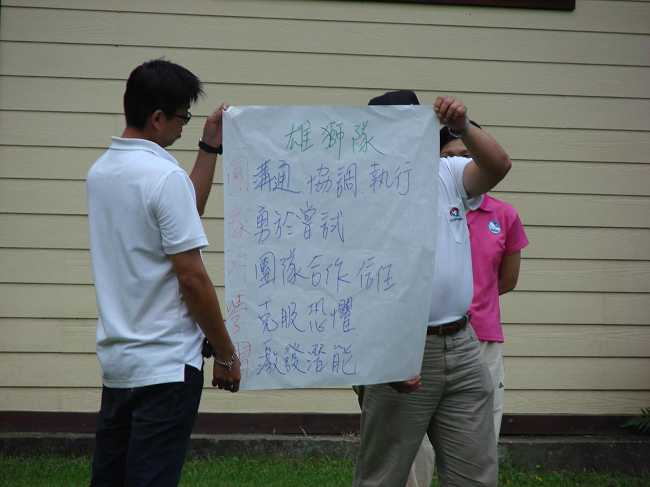 雄獅隊
溝通 協調 執行
勇於嘗試
團隊合作 信任
克服恐懼
激發潛能